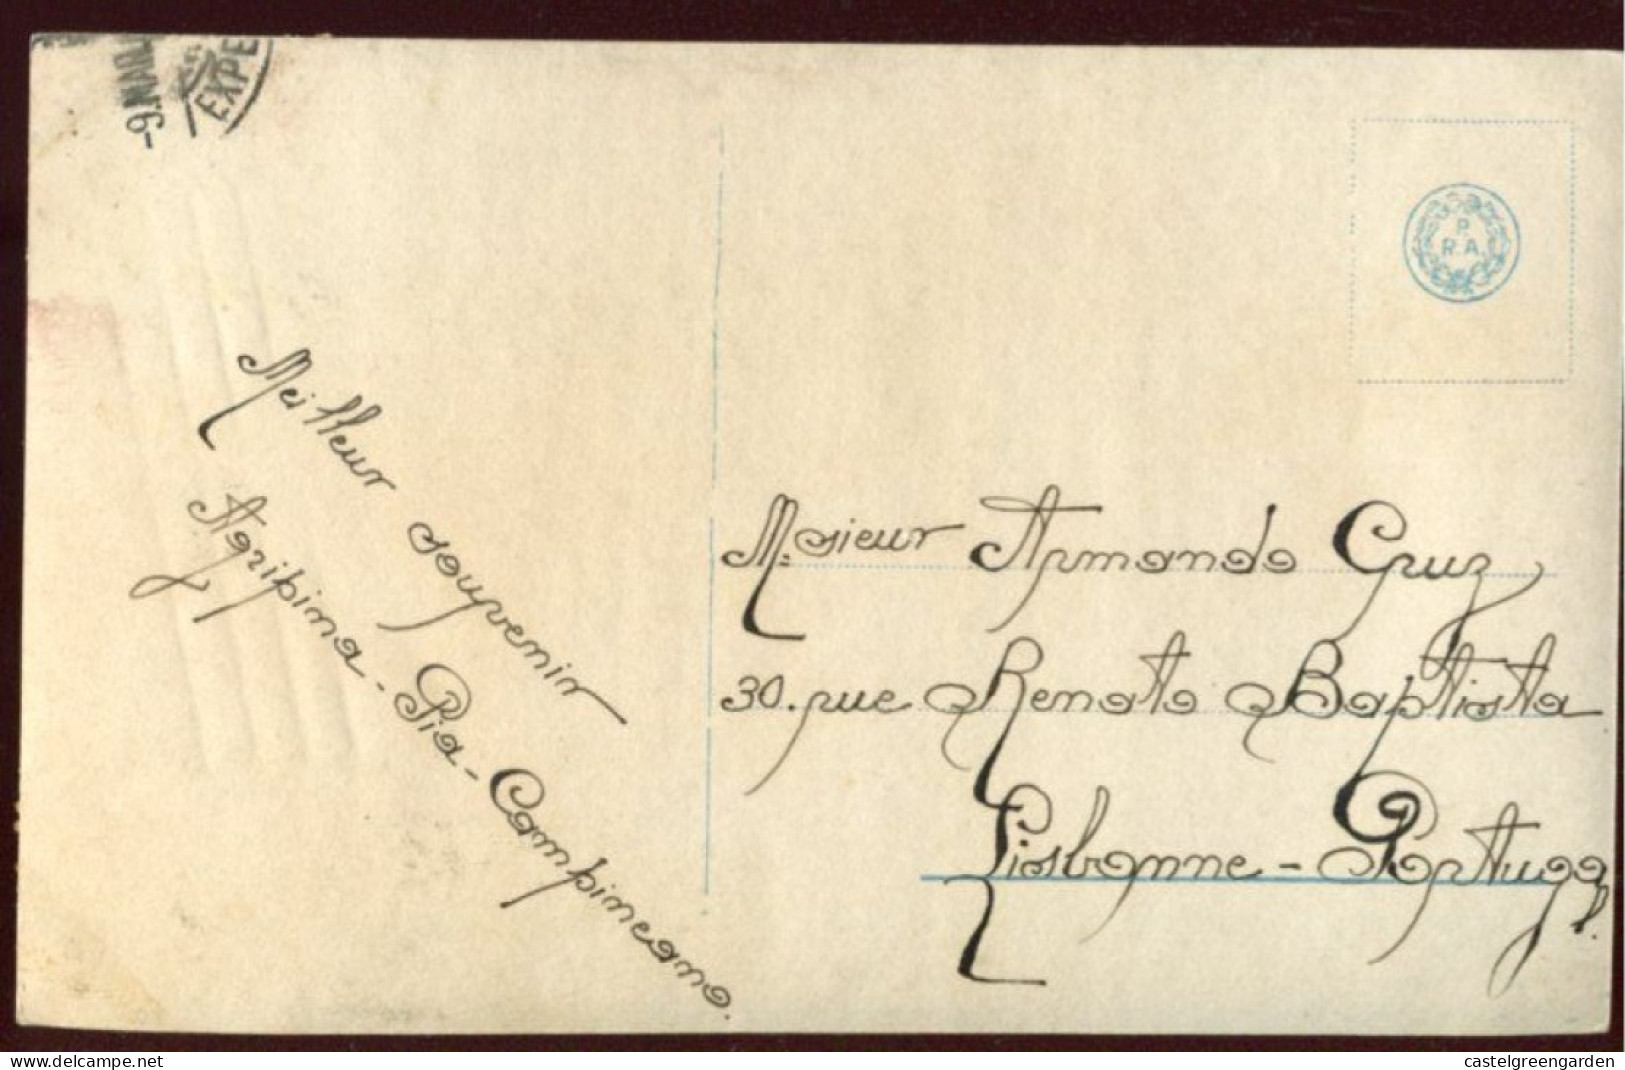 -9.MAR
EXPE
P
R.A.
Meilleur souvenir
Agripina-Pia-Campineano.
M:osieur Armando Cruz
30.rue Renato Baptista
Lisbonne - Portugal.
castelgreengarden